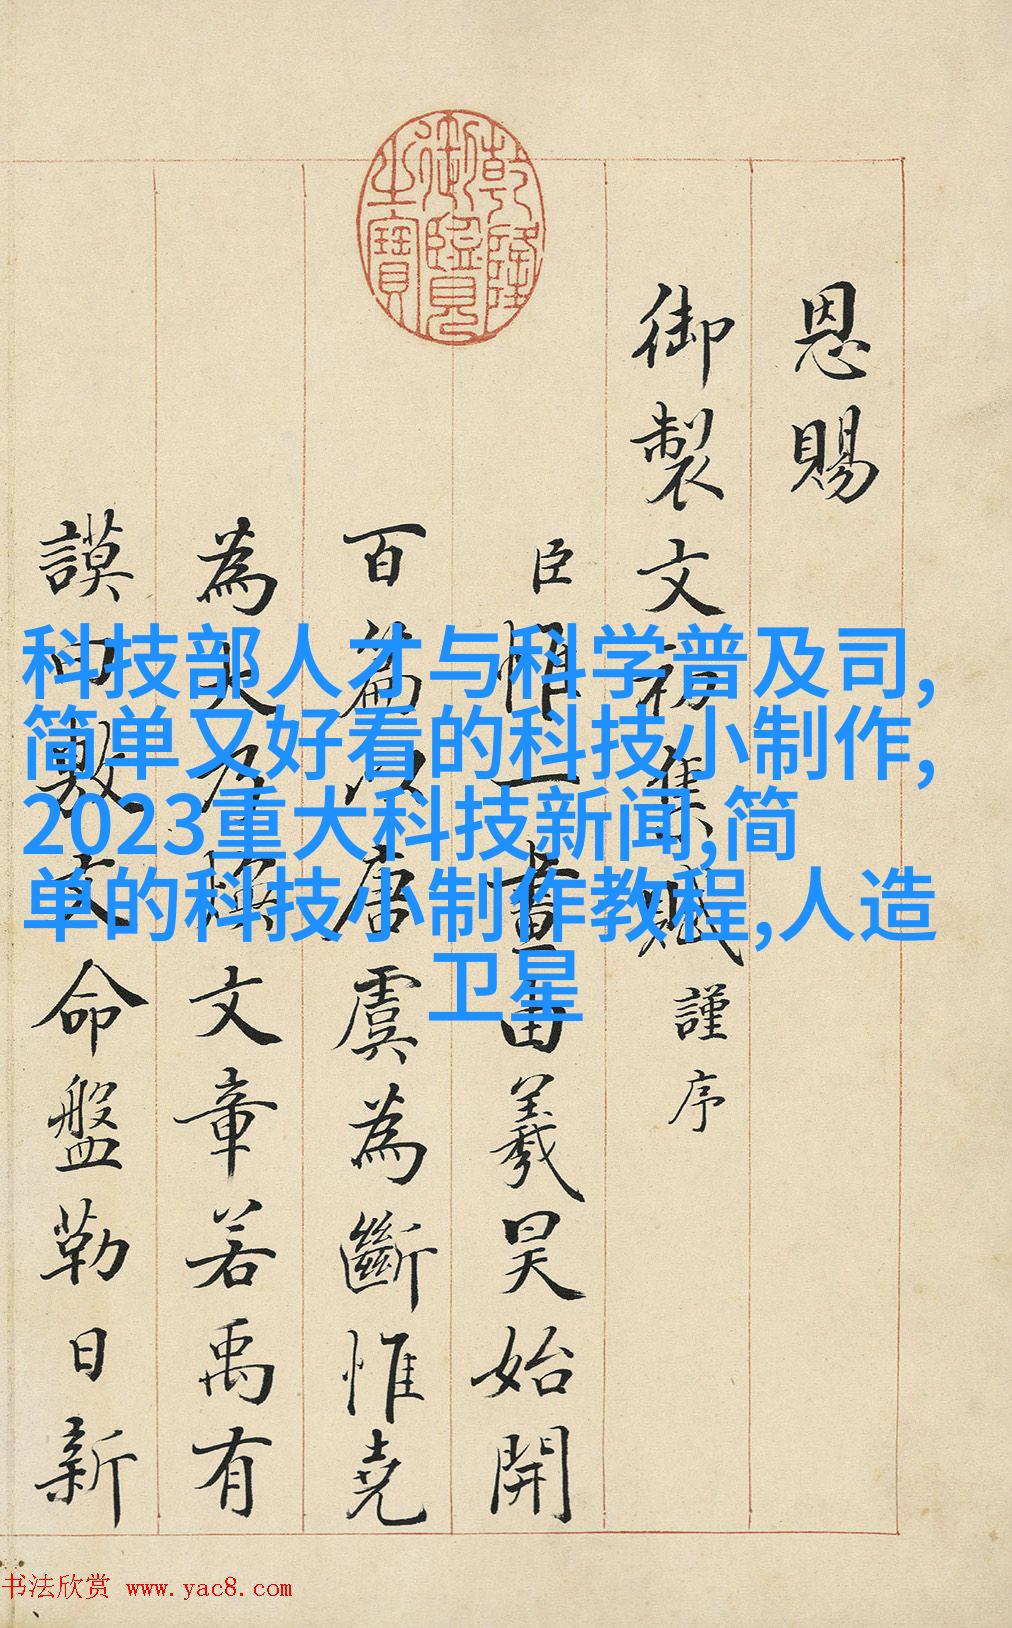 乾隆御覽之寶
恩賜
御製文初集賦謹序
臣惟一畫由羲昊始開
百篇以唐虞為斷惟堯
為大乃煥文章若禹有
謨曰敷文命盤勒日新
科技部人才与科学普及司,
简单又好看的科技小制作,
2023重大科技新闻,简
单的科技小制作教程,人造
卫星
书法欣赏 www.yac8.com